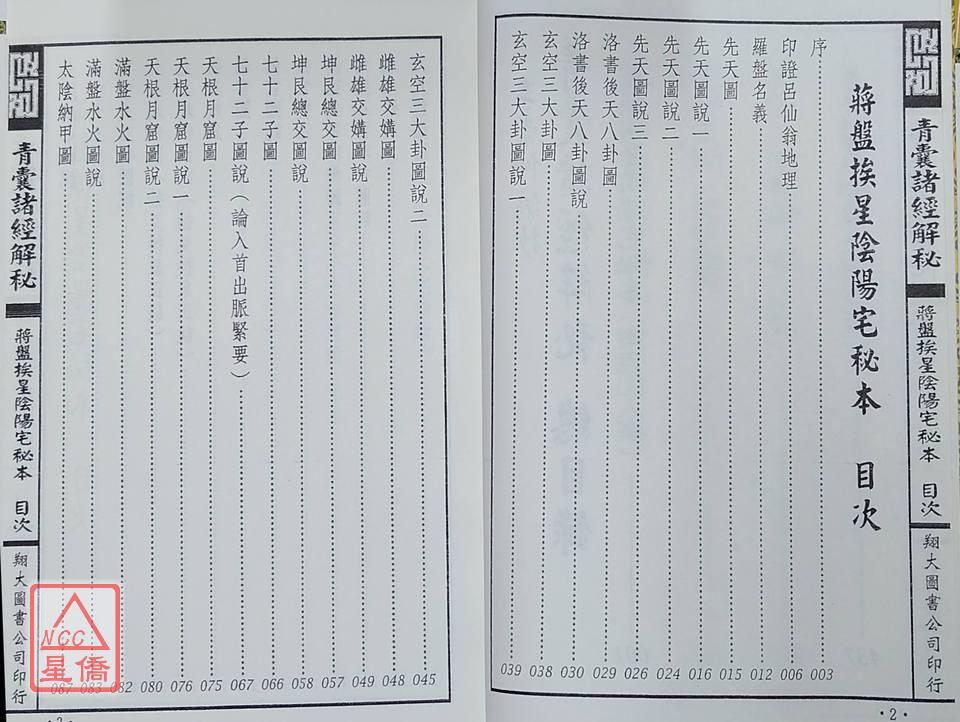 青囊諸經解秘
蔣盤挨星陰陽宅秘本 目次
翔大圖書公司印行
蔣盤挨星陰陽宅秘本 目次
序……003
印證呂仙翁地理……006
羅盤名義……012
先天圖……015
先天圖說一……016
先天圖說二……024
先天圖說三……026
洛書後天八卦圖……029
洛書後天八卦圖說……030
玄空三大卦圖……038
玄空三大卦圖說一……039
•2•
玄空三大卦圖說二……045
雌雄交媾圖……048
雌雄交媾圖說……049
坤艮總交圖……057
坤艮總交圖說……058
七十二子圖……066
七十二子圖說（論入首出脈緊要）……067
天根月窟圖……075
天根月窟圖說一……076
天根月窟圖說二……080
滿盤水火圖……082
滿盤水火圖說……083
太陰納甲圖……087
青囊諸經解秘
蔣盤挨星陰陽宅秘本 目次
翔大圖書公司印行
NCC
星僑